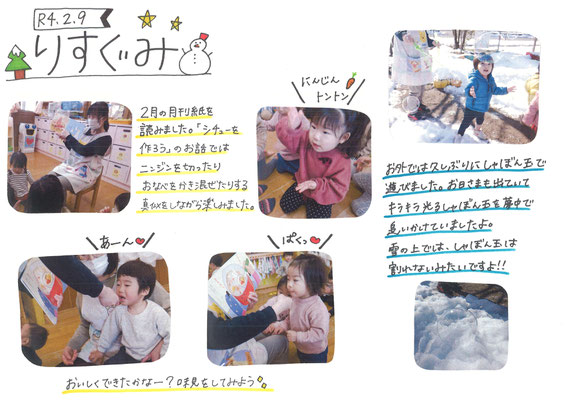 R4.2.9
りすぐみ
2月の月刊紙を
読みました。「シチューを
作ろう」のお話では
ニンジンを切ったり
おなべをかき混ぜたりする
真似をしながら楽しみました。
にんじん
トントン
お外では久しぶりにしゃぼん玉で
遊びました。お日さまも出ていて
キラキラ光るしゃぼん玉を夢中で
追いかけていましたよ。
雪の上では、しゃぼん玉は
割れないみたいですよ!!
あーん
ぱくっ
おいしくできたかなー?味見をしてみよう